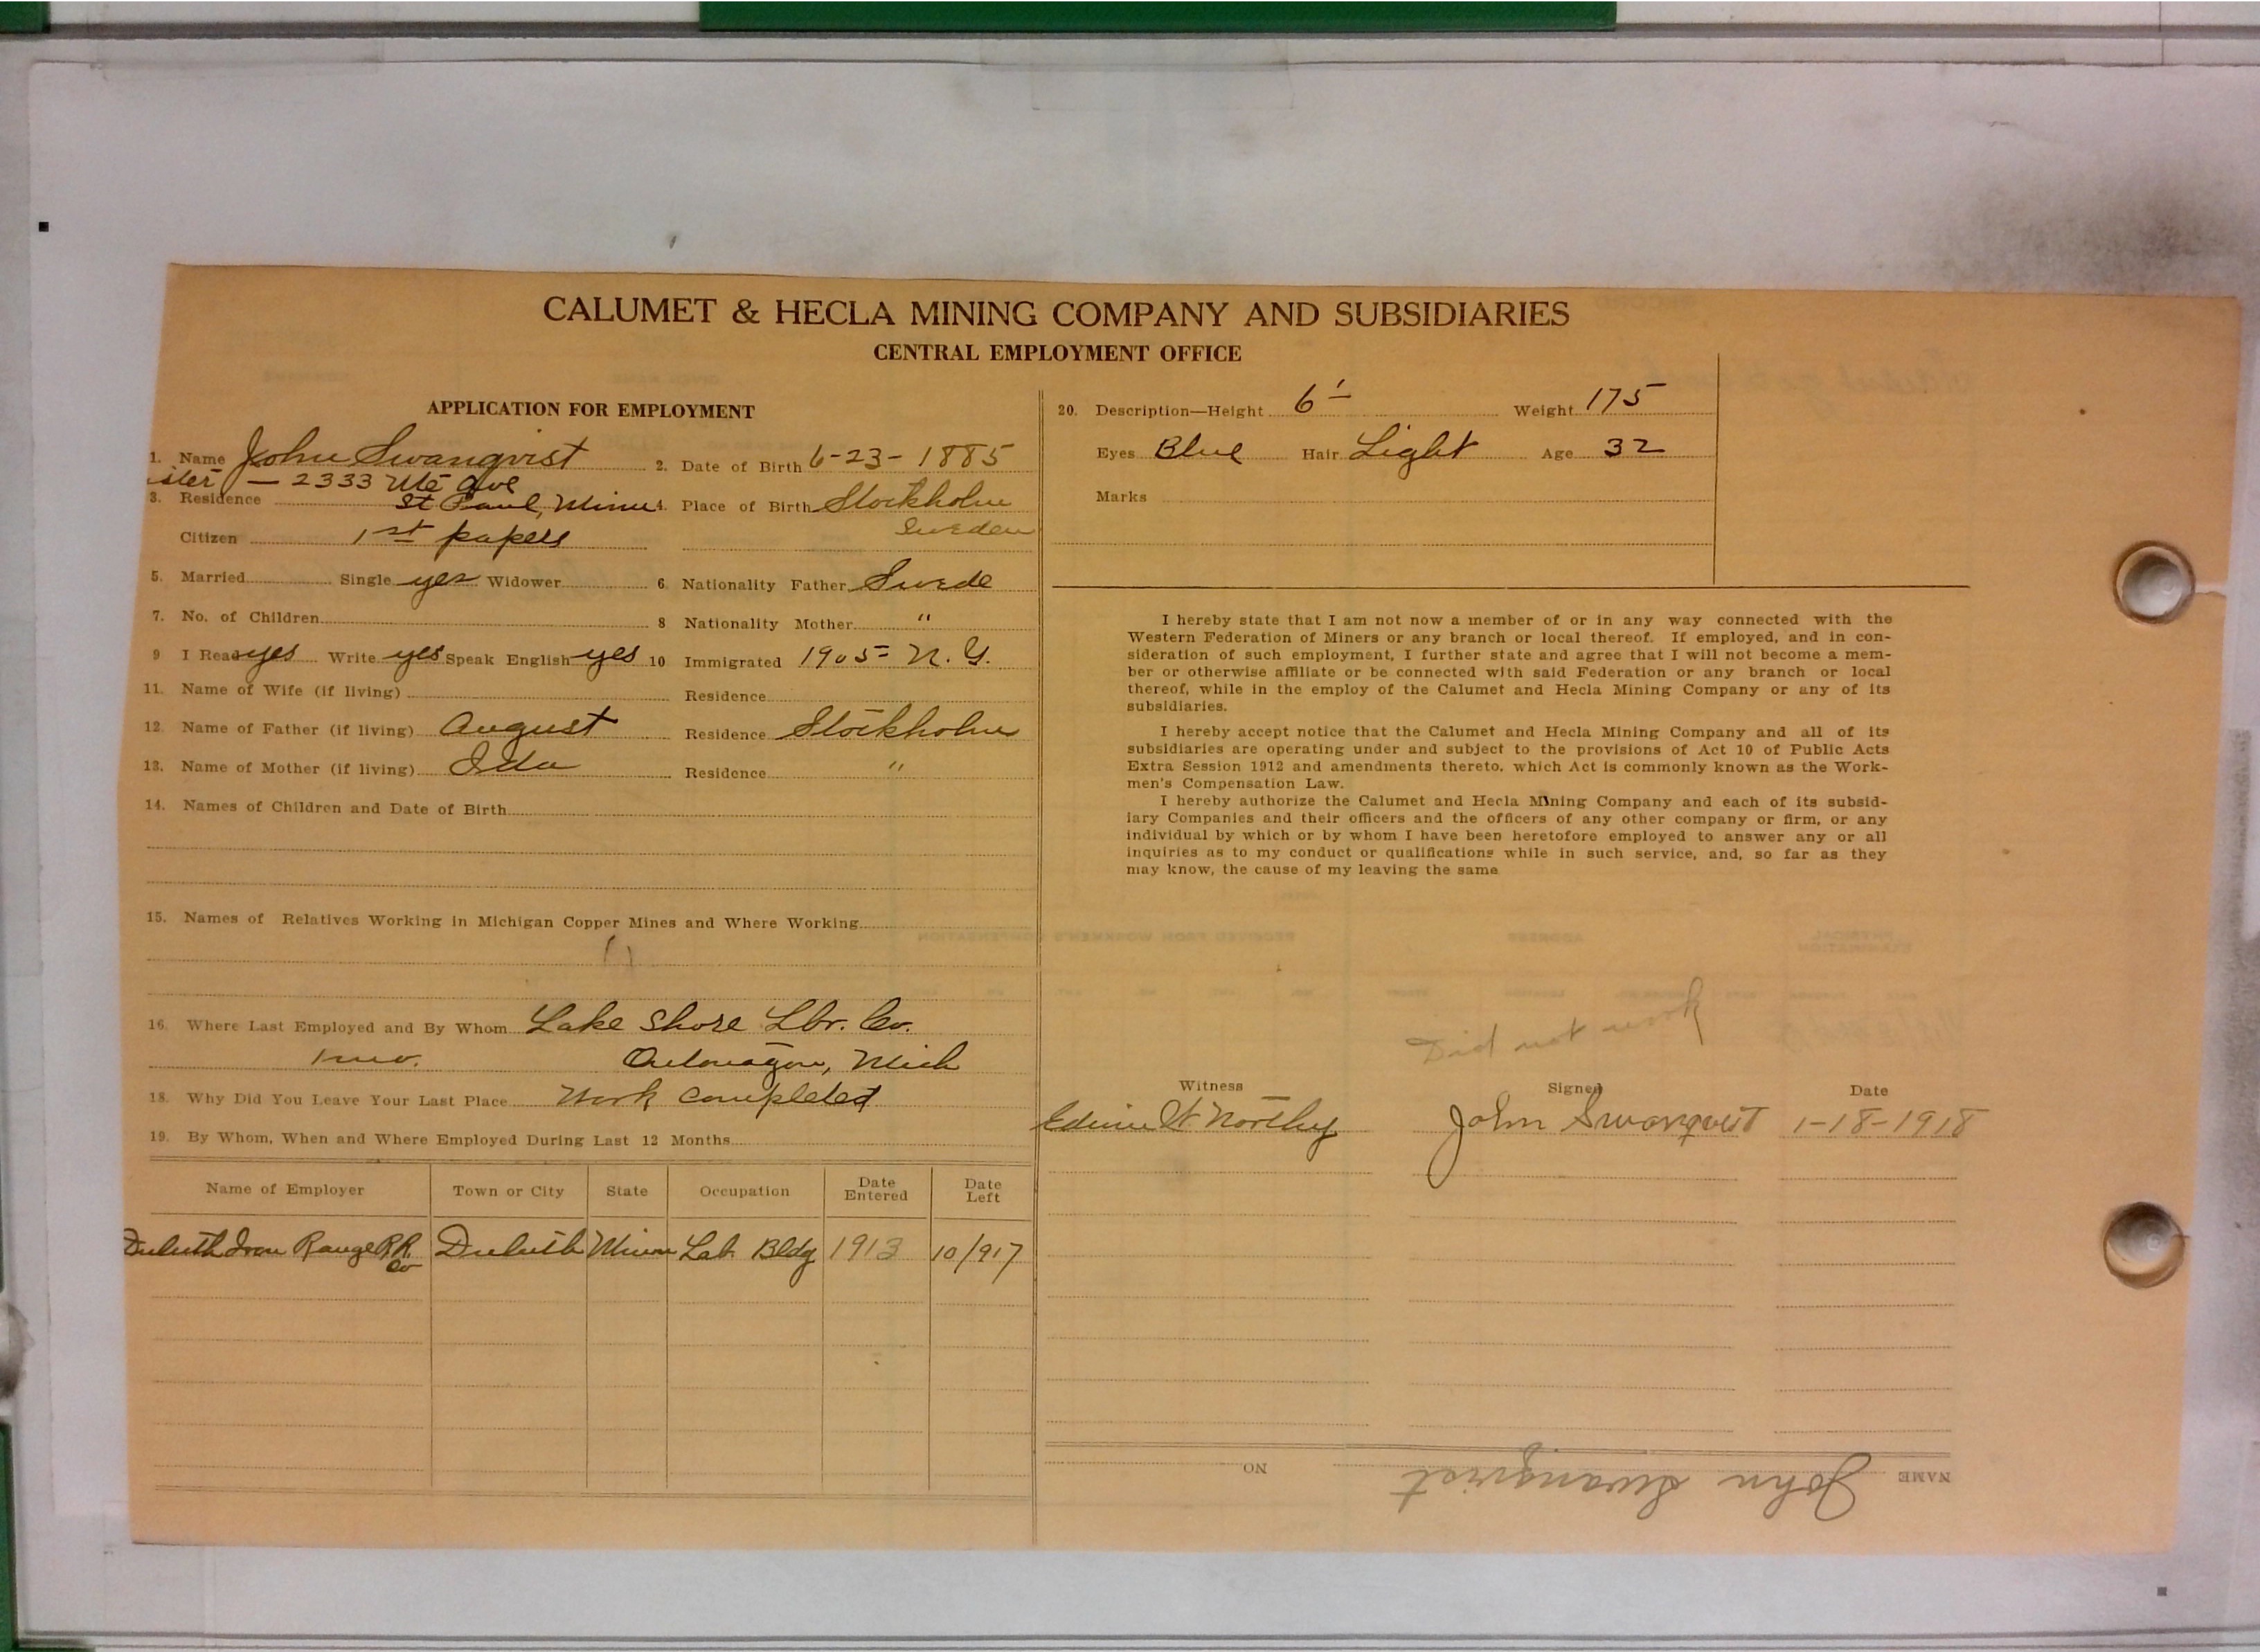 CALUMET & HECLA MINING COMPANY AND SUBSIDIARIES
CENTRAL EMPLOYMENT OFFICE
APPLICATION FOR EMPLOYMENT
1. Name John Swanqvist 2. Date of Birth 6-23-1885
ister — 2333 Ave
3. Residence St Paul, Minn 4. Place of Birth Stockholm
Sweden
Citizen 1st papers
5. Married Single yes Widower 6 Nationality Father Swede
7. No. of Children 8 Nationality Mother "
9 I Read yes Write yes Speak English yes 10 Immigrated 1905 - N. Y.
11. Name of Wife (if living) Residence
12. Name of Father (if living) August Residence Stockholm
13. Name of Mother (if living) Ida Residence "
14. Names of Children and Date of Birth
15. Names of Relatives Working in Michigan Copper Mines and Where Working
16. Where Last Employed and By Whom Lake Shore Lbr. Co.
1 mo. Ontonagon, Mich
18. Why Did You Leave Your Last Place Work completed
19. By Whom, When and Where Employed During Last 12 Months
Name of Employer Town or City State Occupation Date Entered Date Left
Duluth Iron Range R.R. Co Duluth Minn Lab. Bldg 1913 10/917
20. Description—Height 6' — Weight 175
Eyes Blue Hair Light Age 32
Marks
I hereby state that I am not now a member of or in any way connected with the
Western Federation of Miners or any branch or local thereof. If employed, and in con-
sideration of such employment, I further state and agree that I will not become a mem-
ber or otherwise affiliate or be connected with said Federation or any branch or local
thereof, while in the employ of the Calumet and Hecla Mining Company or any of its
subsidiaries.
I hereby accept notice that the Calumet and Hecla Mining Company and all of its
subsidiaries are operating under and subject to the provisions of Act 10 of Public Acts
Extra Session 1912 and amendments thereto, which Act is commonly known as the Work-
men's Compensation Law.
I hereby authorize the Calumet and Hecla Mining Company and each of its subsid-
iary Companies and their officers and the officers of any other company or firm, or any
individual by which or by whom I have been heretofore employed to answer any or all
inquiries as to my conduct or qualifications while in such service, and, so far as they
may know, the cause of my leaving the same
Did not work
Witness Signed Date
Edwin W. Northey John Swanqvist 1-18-1918
NAME John Swanqvist NO